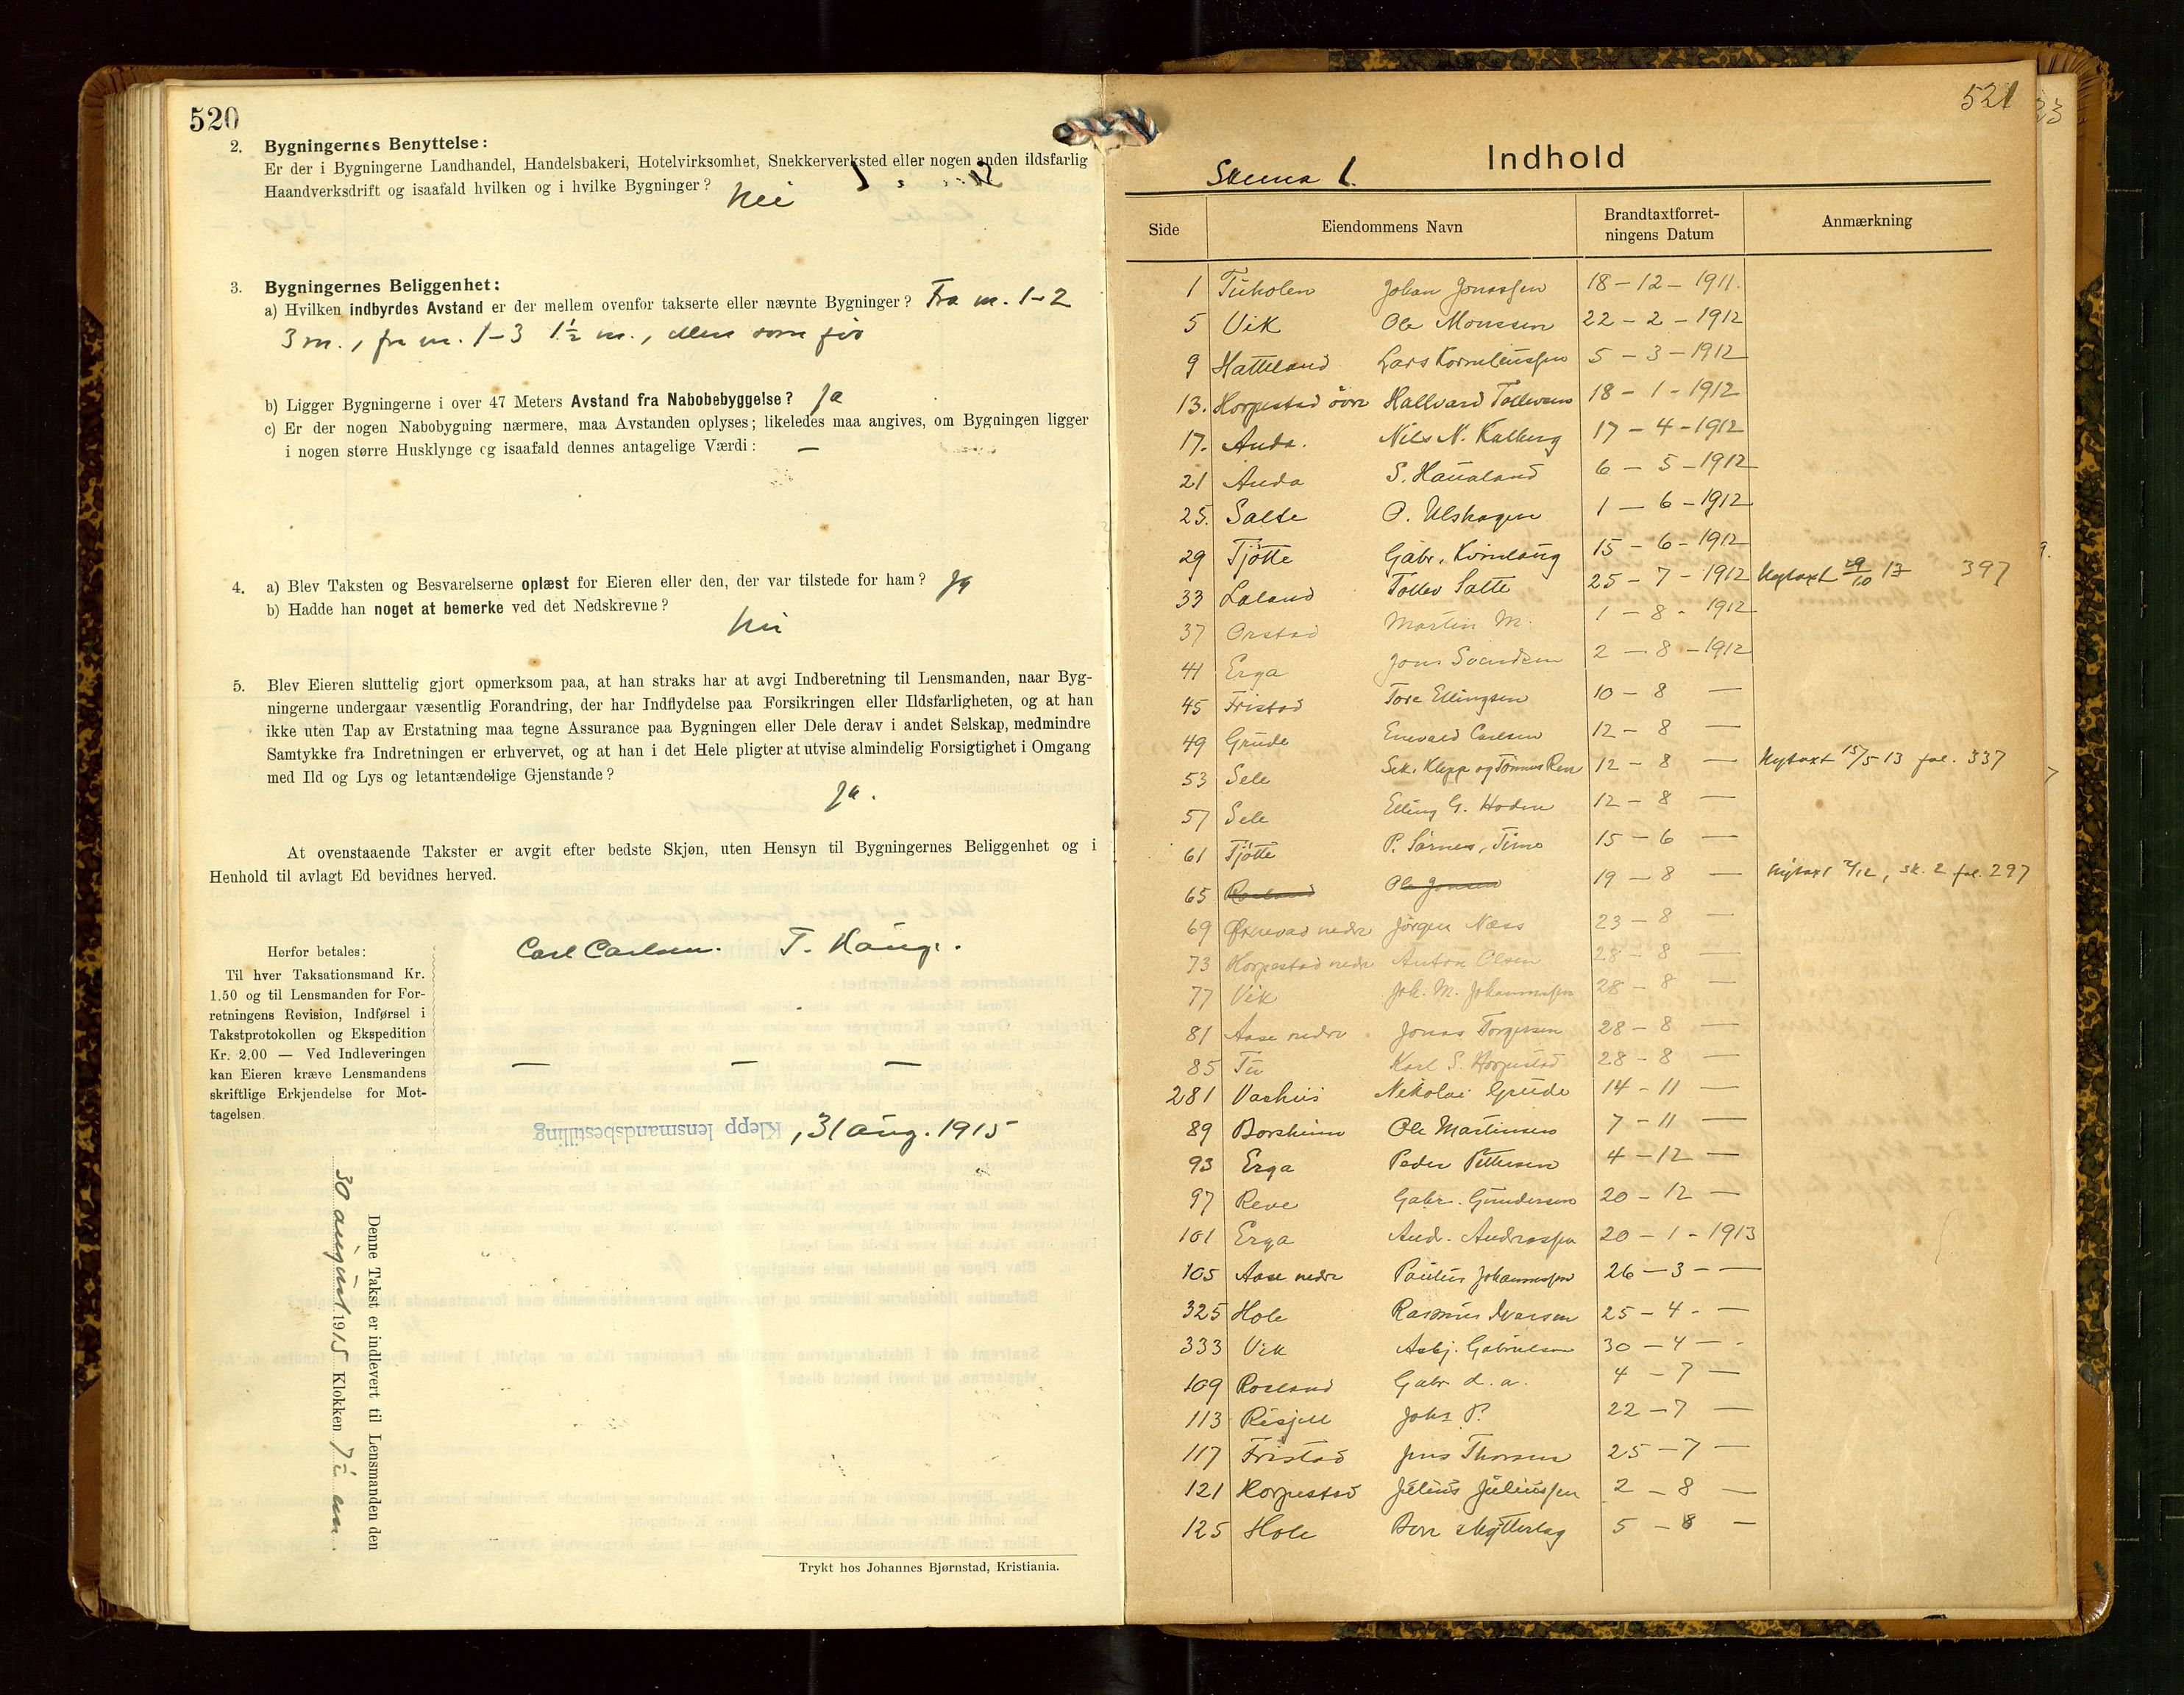 520
2. Bygningernes Benyttelse:
Er der i Bygningerne Landhandel, Handelsbakeri, Hotelvirksomhet, Snekkerverksted eller nogen anden ildsfarlig
Haandverksdrift og isaafald hvilken og i hvilke Bygninger? Nei
3. Bygningernes Beliggenhet:
a) Hvilken indbyrdes Avstand er der mellem ovenfor takserte eller nævnte Bygninger? Fra m. 1-2
3 m., fra m. 1-3 1½ m., ellers som før
b) Ligger Bygningerne i over 47 Meters Avstand fra Nabobebyggelse? Ja
c) Er der nogen Nabobygning nærmere, maa Avstanden oplyses; likeledes maa angives, om Bygningen ligger
i nogen større Husklynge og isaafald dennes antagelige Værdi: —
4. a) Blev Taksten og Besvarelserne oplæst for Eieren eller den, der var tilstede for ham? Ja
b) Hadde han noget at bemerke ved det Nedskrevne?
Nei
5. Blev Eieren sluttelig gjort opmerksom paa, at han straks har at avgi Indberetning til Lensmanden, naar Byg-
ningerne undergaar væsentlig Forandring, der har Indflydelse paa Forsikringen eller Ildsfarligheten, og at han
ikke uten Tap av Erstatning maa tegne Assurance paa Bygningen eller Dele derav i andet Selskap, medmindre
Samtykke fra Indretningen er erhvervet, og at han i det Hele pligter at utvise almindelig Forsigtighet i Omgang
med Ild og Lys og letantændelige Gjenstande?
Ja.
At ovenstaaende Takster er avgit efter bedste Skjøn, uten Hensyn til Bygningernes Beliggenhet og i
Henhold til avlagt Ed bevidnes herved.
Carl Carlsen. T. Haug.
Herfor betales:
Til hver Taksationsmand Kr.
1.50 og til Lensmanden for For-
retningens Revision, Indførsel i
Takstprotokollen og Ekspedition
Kr. 2.00 — Ved Indleveringen
kan Eieren kræve Lensmandens
skriftlige Erkjendelse for Mot-
tagelsen.
— — —
Klepp lensmandsbestilling, 31 aug. 1915
Denne Takst er indlevert til Lensmanden den
30 august 1915 Klokken 7 em.
Trykt hos Johannes Bjørnstad, Kristiania.
521
Indhold
Skema 1.
Side Eiendommens Navn Brandtaxtforret-
ningens Datum Anmærkning
1 Tuholen Johan Jonassen 18-12-1911.
5 Vik Ole Monssen 22-2-1912
9 Hatteland Lars Korneliussen 5-3-1912
13. Horpestad övre Hallvard Tollevsen 18-1-1912
17. Anda. Nils N. Kalberg 17-4-1912
21 Anda S. Haualand 6-5-1912
25. Salte O. Ulshagen 1-6-1912
29 Tjötte Gabr. Kvinlaug 15-6-1912
33 Laland Tollev Salte 25-7-1912 Nytaxt 29/10 13 397
37 Orstad Martin M. 1-8-1912
41 Erga Jons Svendsen 2-8-1912
45 Fristad Tore Ellingsen 10-8 —
49 Grude Enevald Carlsen 12-8 —
53 Sele Sek. Klepp og Tönnes Reve 12-8 — Nytaxt 15/5-13 fol. 337
57 Sele Elling G. Hodne 12-8 —
61 Tjötte P. Sörnes, Time 15-6 —
65 Roeland Ole Jonsen 19-8 — Nytaxt /12, sk. 2 fol. 297
69 Öxnevad nedre Jörgen Næss 23-8 —
73 Horpestad nedre Anton Olsen 28-8 —
77 Vik Joh. M. Johannessen 28-8 —
81 Aase nedre Jonas Torgersen 28-8 —
85 Tu Karl S. Horpestad 28-8 —
281 Vashus Nikolai Grude 14-11 —
89 Borsheim Ole Martinsen 7-11 —
93 Erga Peder Pettersen 4-12 —
97 Reve Gabr. Gundersen 20-12 —
101 Erga Andr. Andreassen 20-1-1913
105 Aase nedre Paulus Johannessen 26-3- —
325 Hole Rasmus Iversen 25-4- —
333 Vik Asbj. Gabrielsen 30-4 —
109 Roeland Gabr. L. a. 4-7 —
113 Risjell Johs P. 22-7 —
117 Fristad Jens Thorsen 25-7 —
121 Horpestad Julius Juliussen 2-8 —
125 Hole Bore skytterlag 5-8 —